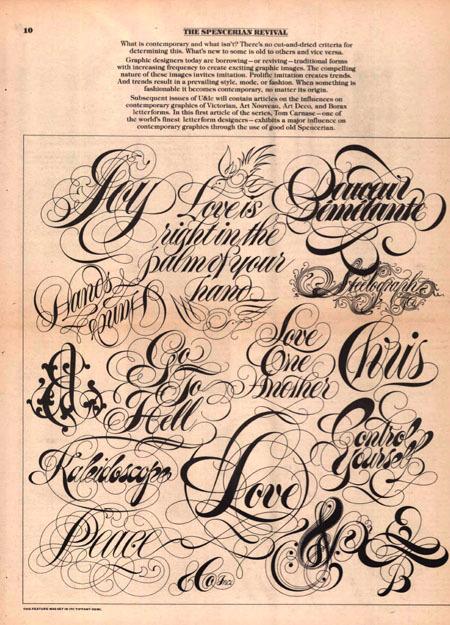 10
THE SPENCERIAN REVIVAL
What is contemporary and what isn't? There's no cut-and-dried criteria for
determining this. What's new to some is old to others and vice versa.
Graphic designers today are borrowing—or reviving—traditional forms
with increasing frequency to create exciting graphic images. The compelling
nature of these images invites imitation. Prolific imitation creates trends.
And trends result in a prevailing style, mode, or fashion. When something is
fashionable it becomes contemporary, no matter its origin.
Subsequent issues of U&lc will contain articles on the influences on
contemporary graphics of Victorian, Art Nouveau, Art Deco, and Borax
letterforms. In this first article of the series, Tom Carnase—one of
the world's finest letterform designers—exhibits a major influence on
contemporary graphics through the use of good old Spencerian.
Joy
Love is
right in the
palm of your
hand
Hands
Hands
Love
One
Another
Chris
Go
To
Hell
Control
Yourself
Kaleidoscope
Love
Peace
&
Co Inc.
THIS FEATURE WAS SET IN ITC TIFFANY DEMI.